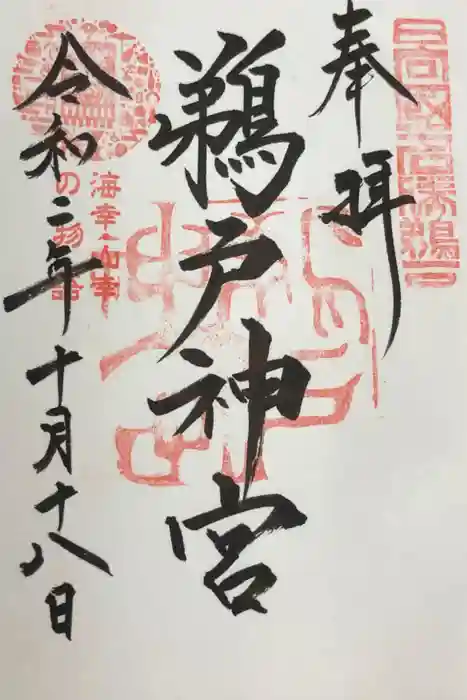 奉拝
鵜戸神宮
令和二年十月十八日
海幸・山幸
の物語